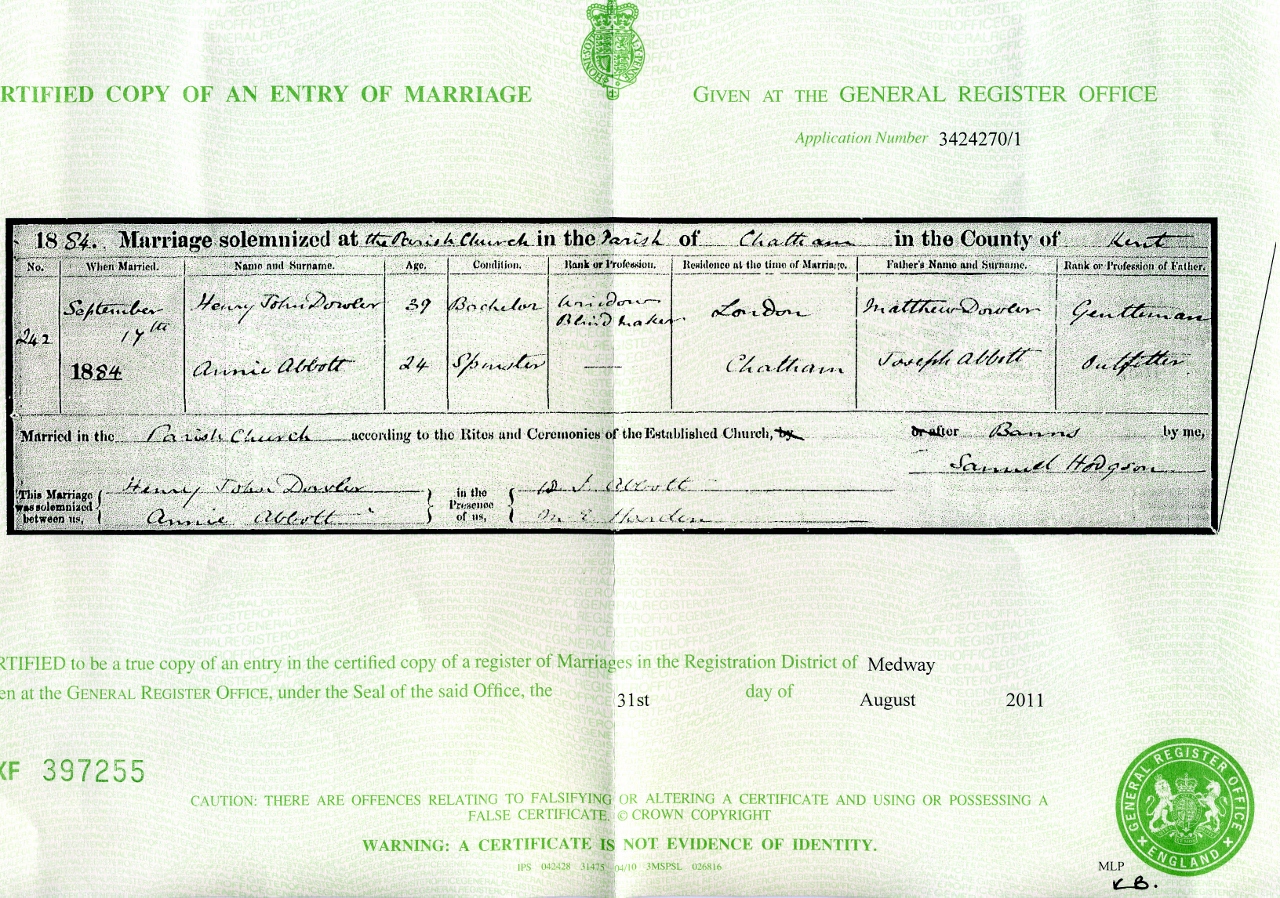 RTIFIED COPY OF AN ENTRY OF MARRIAGE
GIVEN AT THE GENERAL REGISTER OFFICE
Application Number 3424270/1
1884. Marriage solemnized at the Parish Church in the Parish of Chatham in the County of Kent
No. When Married. Name and Surname. Age. Condition. Rank or Profession. Residence at the time of Marriage. Father's Name and Surname. Rank or Profession of Father.
242 September 17th 1884
Henry John Dowler 39 Bachelor Window Blind maker London Matthew Dowler Gentleman
Annie Abbott 24 Spinster — Chatham Joseph Abbott Outfitter
Married in the Parish Church according to the Rites and Ceremonies of the Established Church, by or after Banns by me,
Samuel Hodgson
This Marriage was solemnized between us, Henry John Dowler Annie Abbott
in the Presence of us, Abbott M E Harden
RTIFIED to be a true copy of an entry in the certified copy of a register of Marriages in the Registration District of Medway
en at the GENERAL REGISTER OFFICE, under the Seal of the said Office, the 31st day of August 2011
XF 397255
CAUTION: THERE ARE OFFENCES RELATING TO FALSIFYING OR ALTERING A CERTIFICATE AND USING OR POSSESSING A
FALSE CERTIFICATE. © CROWN COPYRIGHT
WARNING: A CERTIFICATE IS NOT EVIDENCE OF IDENTITY.
IPS 042428 31475 04/10 3MSPSL 026816
GENERAL REGISTER OFFICE
ENGLAND
MLP
KB.